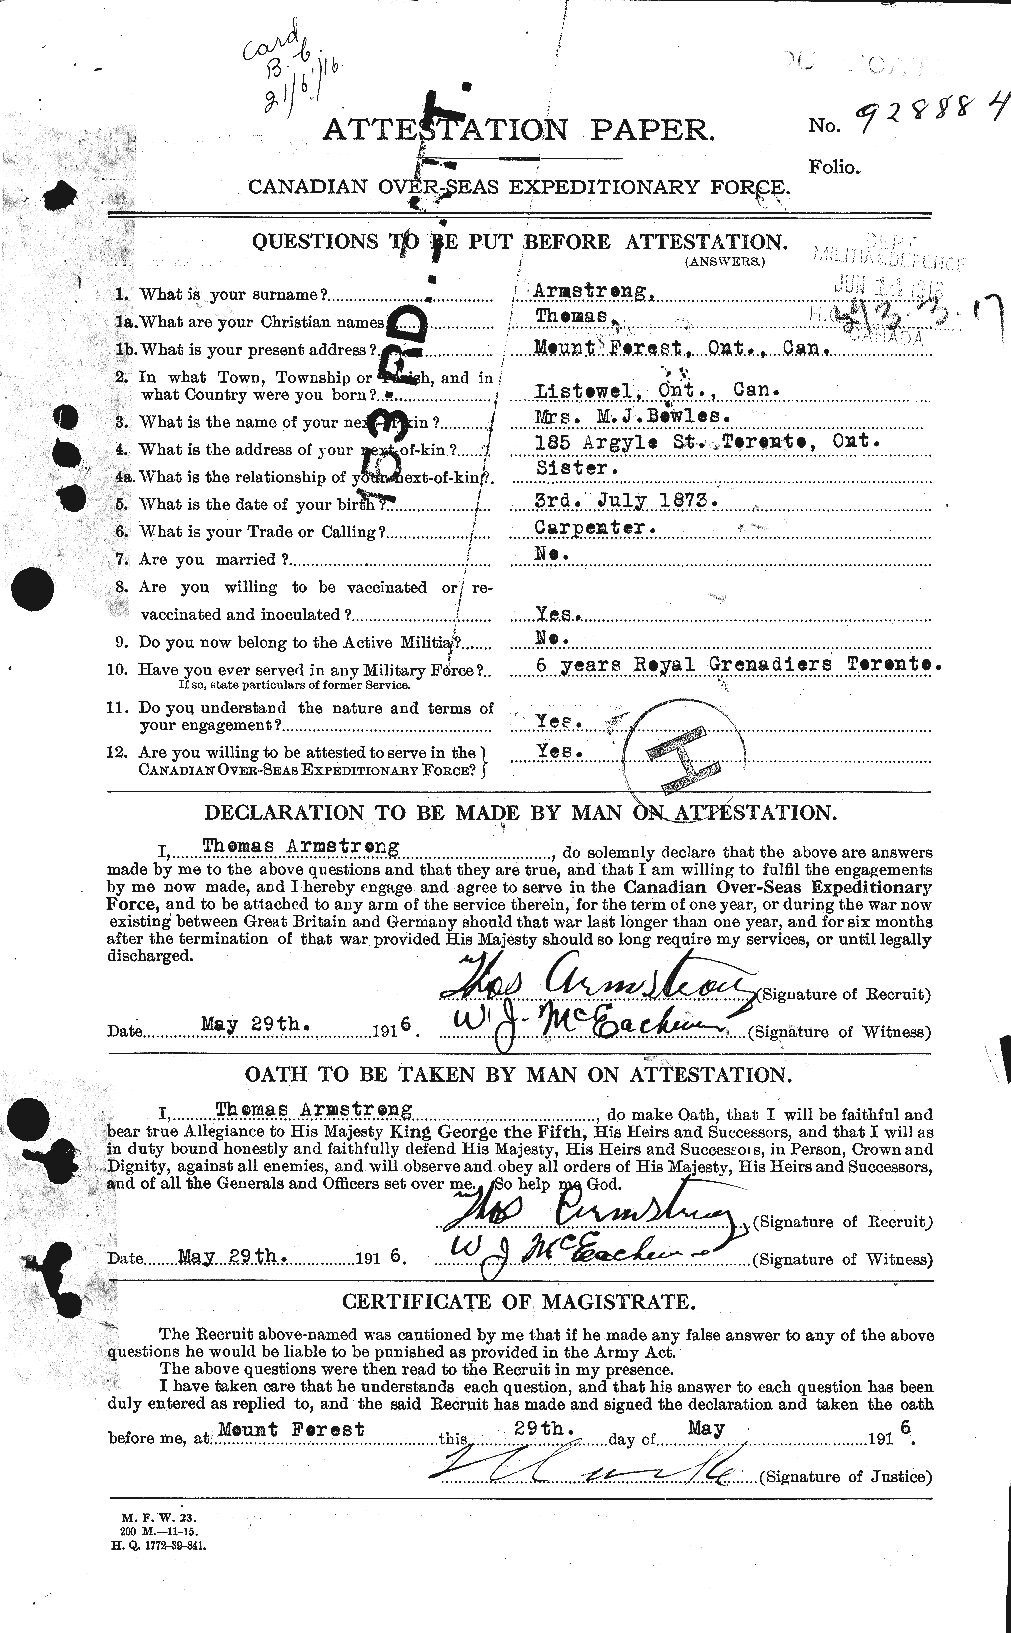 Card
B. C.
21/6/16
ATTESTATION PAPER.
No. 928884
Folio.
CANADIAN OVER-SEAS EXPEDITIONARY FORCE.
QUESTIONS TO BE PUT BEFORE ATTESTATION.
(ANSWERS.)
DEPT
MILITIA & DEFENCE
JUN
CANADA
153RD
1. What is your surname? Armstrong,
1a. What are your Christian names Thomas,
1b. What is your present address? Mount Forest, Ont., Can.
2. In what Town, Township or Parish, and in
what Country were you born? Listowel, Ont., Can.
3. What is the name of your next-of-kin? Mrs. M.J.Bowles.
4. What is the address of your next-of-kin? 185 Argyle St. Toronto, Ont.
4a. What is the relationship of your next-of-kin?. Sister.
5. What is the date of your birth? 3rd. July 1873.
6. What is your Trade or Calling? Carpenter.
7. Are you married? No.
8. Are you willing to be vaccinated or re-
vaccinated and inoculated? Yes.
9. Do you now belong to the Active Militia? No.
10. Have you ever served in any Military Force? 6 years Royal Grenadiers Toronto.
If so, state particulars of former Service.
11. Do you understand the nature and terms of
your engagement? Yes.
12. Are you willing to be attested to serve in the Yes.
CANADIAN OVER-SEAS EXPEDITIONARY FORCE?
H
DECLARATION TO BE MADE BY MAN ON ATTESTATION.
I, Thomas Armstrong, do solemnly declare that the above are answers
made by me to the above questions and that they are true, and that I am willing to fulfil the engagements
by me now made, and I hereby engage and agree to serve in the Canadian Over-Seas Expeditionary
Force, and to be attached to any arm of the service therein, for the term of one year, or during the war now
existing between Great Britain and Germany should that war last longer than one year, and for six months
after the termination of that war provided His Majesty should so long require my services, or until legally
discharged.
Thos Armstrong (Signature of Recruit)
Date May 29th. 1916. W J McEachern (Signature of Witness)
OATH TO BE TAKEN BY MAN ON ATTESTATION.
I, Thomas Armstrong, do make Oath, that I will be faithful and
bear true Allegiance to His Majesty King George the Fifth, His Heirs and Successors, and that I will as
in duty bound honestly and faithfully defend His Majesty, His Heirs and Successors, in Person, Crown and
Dignity, against all enemies, and will observe and obey all orders of His Majesty, His Heirs and Successors,
and of all the Generals and Officers set over me. So help me God.
Thos Armstrong (Signature of Recruit)
Date May 29th. 1916. W J McEachern (Signature of Witness)
CERTIFICATE OF MAGISTRATE.
The Recruit above-named was cautioned by me that if he made any false answer to any of the above
questions he would be liable to be punished as provided in the Army Act.
The above questions were then read to the Recruit in my presence.
I have taken care that he understands each question, and that his answer to each question has been
duly entered as replied to, and the said Recruit has made and signed the declaration and taken the oath
before me, at Mount Forest this 29th. day of May 1916.
(Signature of Justice)
M. F. W. 23.
200 M.—11-15.
H. Q. 1772-39-841.